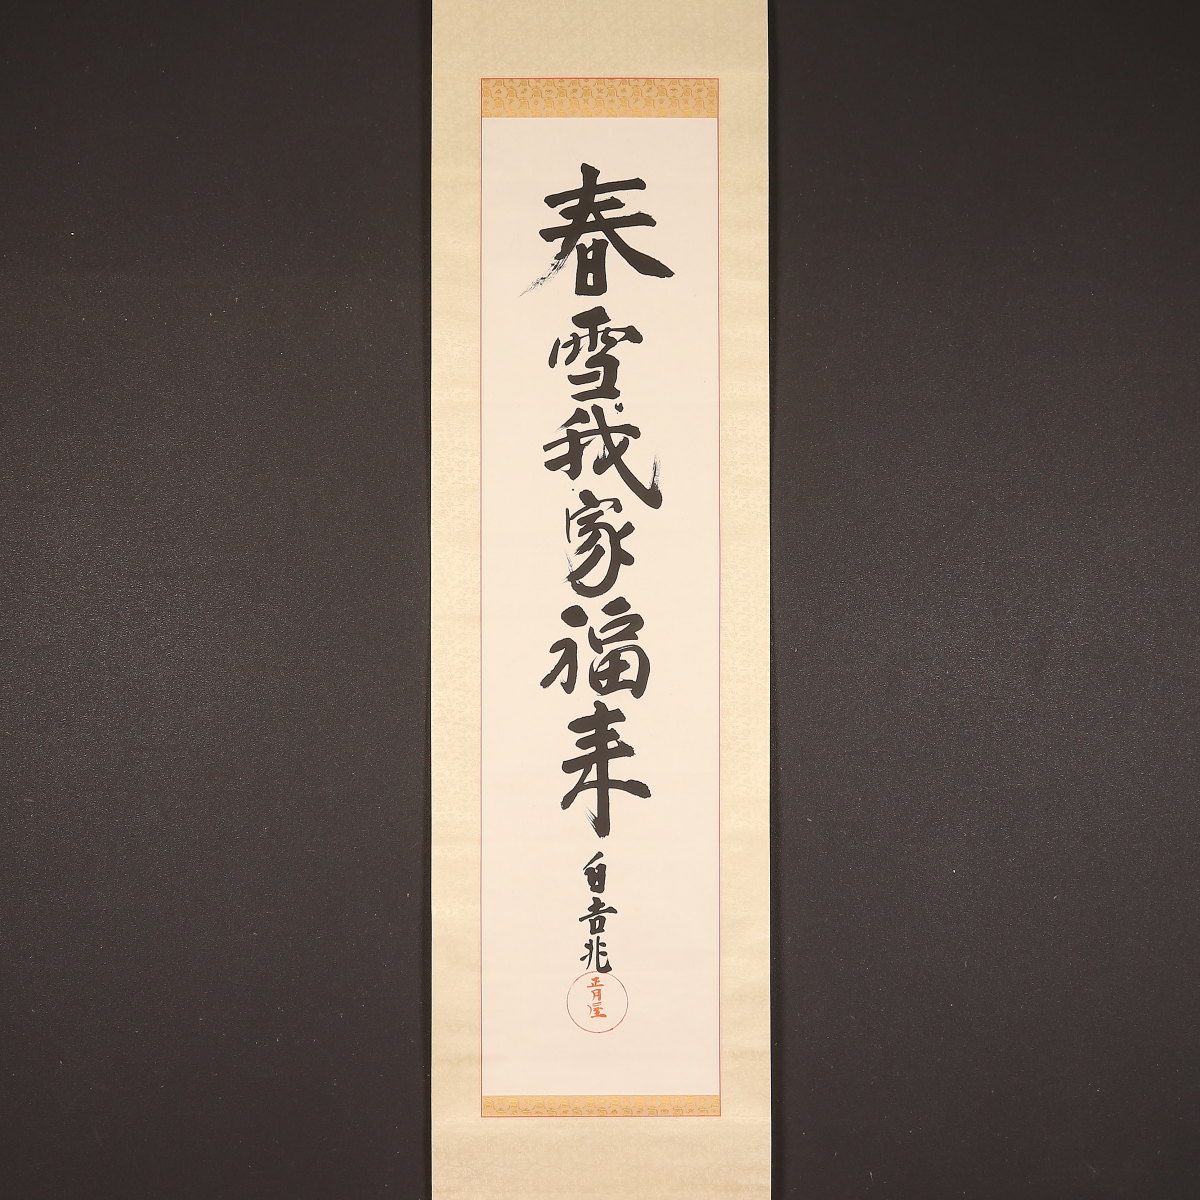 春雪我家福来
自吉兆
正月屋